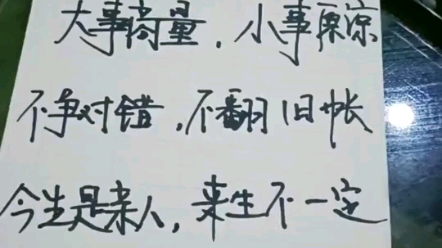 大事商量，小事原谅
不争对错，不翻旧帐
今生是亲人，来生不一定